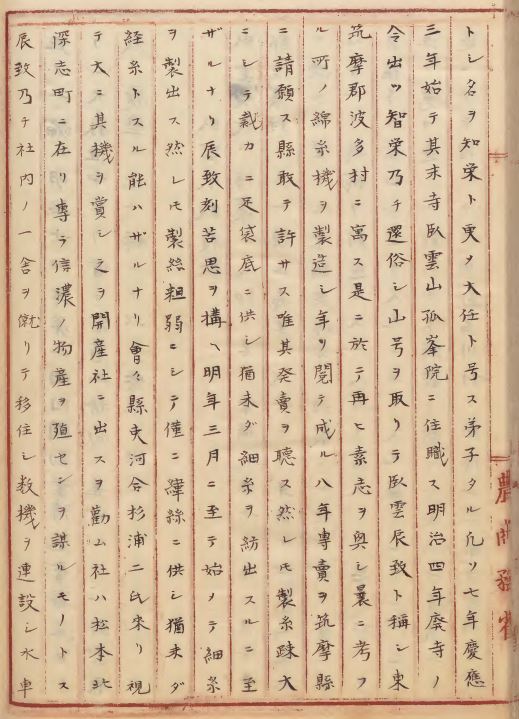 トシ名ヲ知栄ト更メ大任ト号ス弟子タル凡ソ七年慶應
三年始テ其末寺臥雲山孤峯院ニ住職ス明治四年廃寺ノ
令出ツ智栄乃チ還俗シ山号ヲ取リテ臥雲辰致ト稱シ東
筑摩郡波多村ニ寓ス是ニ於テ再ヒ素志ヲ興シ曩ニ考フ
ル所ノ綿糸機ヲ製造シ年ヲ閲テ成ル八年專賣ヲ筑摩縣
ニ請願ス縣敢テ許サス唯其発賣ヲ聴ス然レ𪜈製糸疎大
ニシテ裁カニ足袋底ニ供シ猶未ダ細糸ヲ紡出スルニ至
ザルナリ辰致刻苦思ヲ構ヘ明年三月ニ至テ始メテ細糸
ヲ製出ス然レ𪜈製絲粗弱ニシテ僅ニ緯絲ニ供シ猶未ダ
経糸トスル能ハザルナリ會々縣吏河合杉浦二氏来リ視
テ大ニ其機ヲ賞シ之ヲ開産社ニ出スヲ勸ム社ハ松本北
深志町ニ在リ專ラ信濃ノ物産ヲ殖センヲ謀ルモノトス
辰致乃チ社内ノ一舎ヲ僦リテ移住シ数機ヲ連設シ水車
農商務省